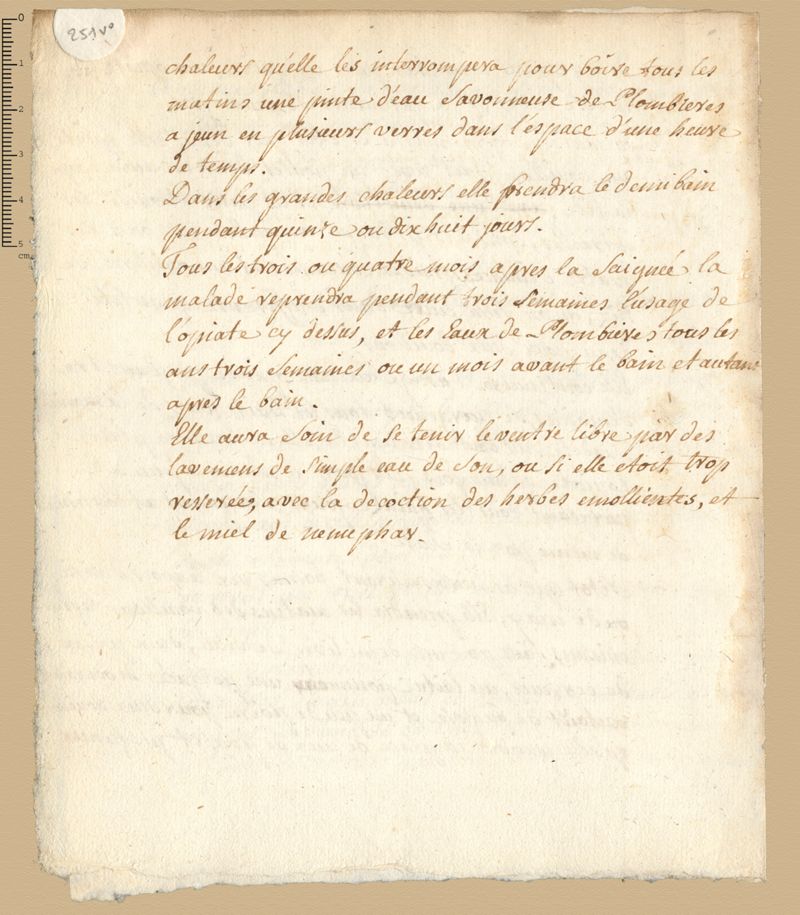 251 v°
0
1
2
3
4
5
cm
chaleurs qu'elle les interrompera pour boire tous les
matins une pinte d'eau Savonneuse de Plombieres
a jeun en plusieurs verres dans l'espace d'une heure
de temps.
Dans les grandes chaleurs elle prendra le demi bain
pendant quinze ou dix huit jours.
Tous les trois ou quatre mois apres la Saignée la
malade reprendra pendant trois Semaines l'usage de
l'opiate cy dessus, et les Eaux de Plombieres tous les
ans trois Semaines ou un mois avant le bain et autant
apres le bain.
Elle aura Soin de Se tenir le ventre libre par des
lavemens de Simple eau de Son, ou Si elle etoit trop
resserée, avec la decoction des herbes emollientes, et
le miel de nenuphar.